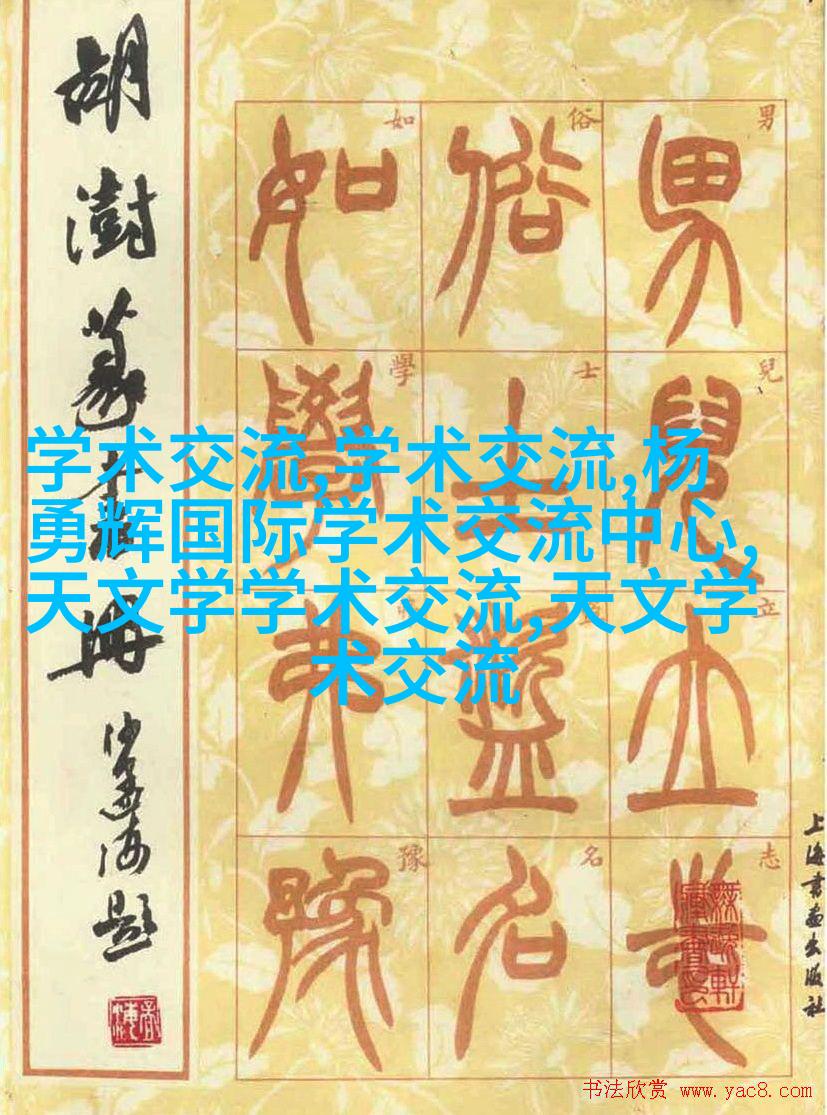 胡澍篆書冊
沙孟海題
男 兒 立 志
俗 士 盡 名
如 學 弗 豫
学术交流,学术交流,杨
勇辉国际学术交流中心,
天文学学术交流,天文学
术交流
上海書畫出版社
书法欣赏 www.yac8.com